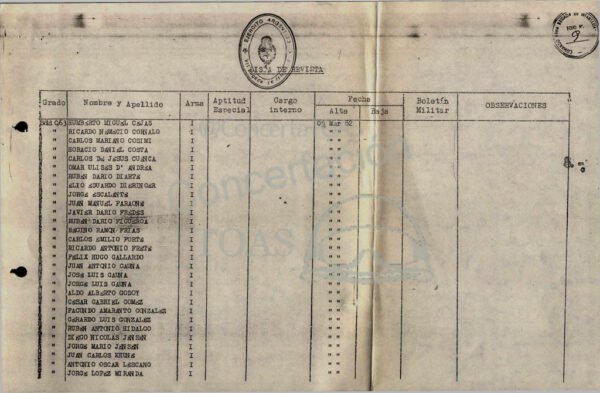 EJERCITO ARGENTINO
LISTA DE REVISTA
FOLIO Nº
9
Grado Nombre y Apellido Arma Aptitud Especial Cargo interno Fecha Alta Baja Boletín Militar OBSERVACIONES
Sld C63 HUMBERTO MIGUEL CEJAS I 03 Mar 82
" RICARDO NEMECIO CORNALO I " "
" CARLOS MARIANO COSIMI I " "
" HORACIO DANIEL COSTA I " "
" CARLOS De JESUS CUENCA I " "
" OMAR ULISES D' ANDREA I " "
" RUBEN DARIO DIARTE I " "
" ELIO EDUARDO DIERINGER I " "
" JORGE ESCALANTE I " "
" JUAN MANUEL FARAONE I " "
" JAVIER DARIO FREDES I " "
" RUBEN DARIO FIGUEROA I " "
" REGINO RAMON FRIAS I " "
" CARLOS EMILIO FORTE I " "
" RICARDO ANTONIO FRETE I " "
" FELIX HUGO GALLARDO I " "
" JUAN ANTONIO GAUNA I " "
" JOSE LUIS GAUNA I " "
" JORGE LUIS GAUNA I " "
" ALDO ALBERTO GODOY I " "
" CESAR GABRIEL GOMEZ I " "
" FACUNDO AMARANTO GONZALEZ I " "
" GERARDO LUIS GONZALEZ I " "
" RUBEN ANTONIO HIDALGO I " "
" DIEGO NICOLAS JENSEN I " "
" JORGE MARIO JENSEN I " "
" JUAN CARLOS KHUNE I " "
" ANTONIO OSCAR LESCANO I " "
" JORGE LOPEZ MIRANDA I " "
@Concertar
Concertación
TOAS